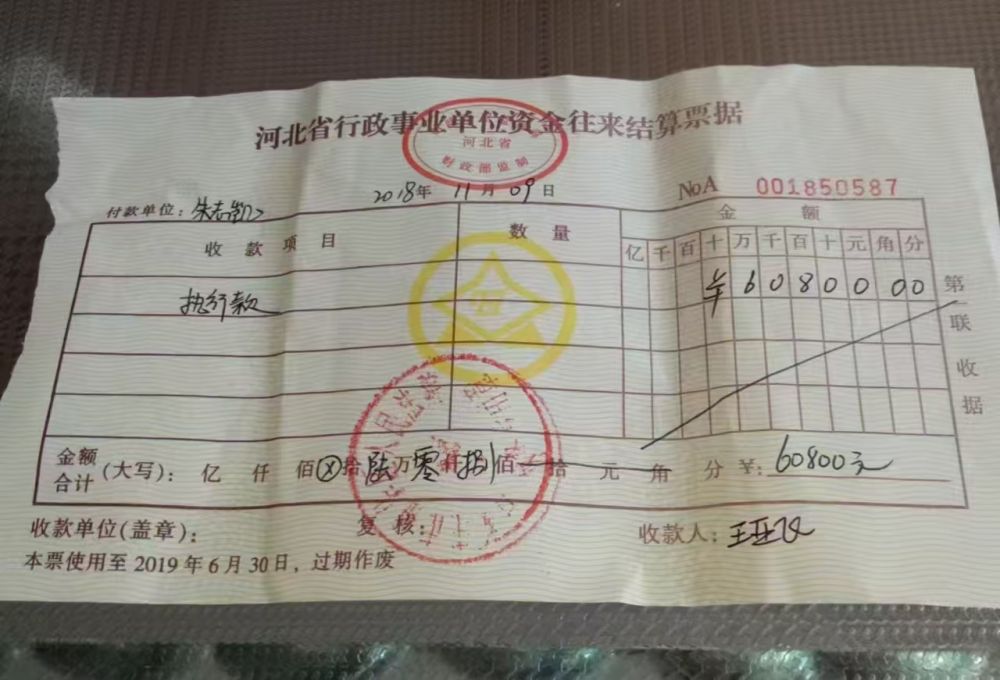 河北省行政事业单位资金往来结算票据
河北省
财政部监制
2018年 11月 09日
NoA 001850587
付款单位：朱志
收款项目 数量 金额
亿 千 百 十 万 千 百 十 元 角 分
执行款 ¥ 6 0 8 0 0 0 0
第 联 收据
金额合计(大写)： 亿 仟 佰 ⊗拾 陆万 零仟 捌佰 拾 元 角 分 ¥：60800元
收款单位(盖章)： 复核： 收款人：王亚飞
本票使用至2019年6月30日，过期作废